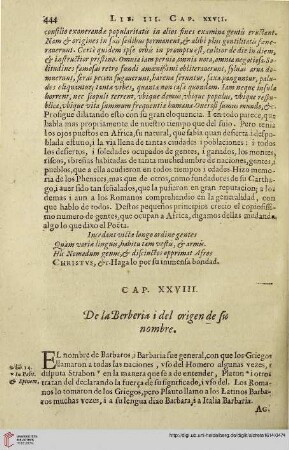 444 LIB. III. CAP. XXVII.
consilio exonerandæ popularitatis in alios fines examina gentis eructant.
Nam & origines in suis saltibus permanent, & alibi plus gentilitatis
averunt. Certè quidem ipse orbis in promptu est, cultior de die in diem,
& instructior pristino. Omnia iam pervia, omnia nota, omnia negotiosa. So-
litudines famosas retro fundi amœnissimi obliteraverunt, silvas arva do-
muerunt, feras pecora fugaverunt, harenæ seruntur, saxa panguntur, palu-
des eliquantur, tantæ urbes, quantæ non casæ quondam. Iam neque insulæ
horrent, nec scopuli terrent, ubique domus, ubique populus, ubique respu-
blica, ubique vita summum frequentiæ humanæ. Onerosi sumus mundo, &c.
Prosigue dilatando esto con su gran eloquencia. I en todo parece, que
habla mas propriamente de nuestro tiempo que del suyo. Pero tenia
los ojos puestos en Africa, su natural, que sabia quan desierta i despo-
blada estuvo, i la via llena de tantas ciudades i poblaciones: i todos
los desiertos, i soledades ocupados de gentes, i ganados, los montes,
riscos, i breñas habitados de tanta muchedumbre de naciones, gentes, i
pueblos, que a ella acudieron en todos tiempos i edades. Hizo memo-
ria de los Phenices; mas que de otros, como fundadores de su Cartha-
go, i aver sido tan señalados, que la pusieron en gran reputacion; a los
demas i aun a los Romanos comprehendio en la generalidad, con
que hablo de todos. Destos pequeños principios crecio el copiosissi-
mo numero de gentes, que ocupan a Africa, digamos dellas mudando
algo lo que dixo el Poeta.
Incedunt victæ longo ordine gentes
Quam variæ linguis, habitu tam vestis, & armis.
Hic Nomadum genus, & discinctos
CHRISTVS, &c. Hagalo por su immensa bondad.
CAP. XXVIII.
De la Berberia i del origen de su
nombre.
EL nombre de Barbaros, i Barbaria fue general, con que los Griegos
llamaron a todas las naciones, i uso del Homero algunas vezes, i
disputa Strabon en la manera que se a de entender, Platon i otros
tratan del declarando la fuerça de su significado, i uso del. Los Roma-
nos lo tomaron de los Griegos, pero Plauto llamo a los Latinos Barba-
ros muchas vezes, i a su lengua dixo Barbara, i a Italia Barbaria.
lib. 14.
AG.